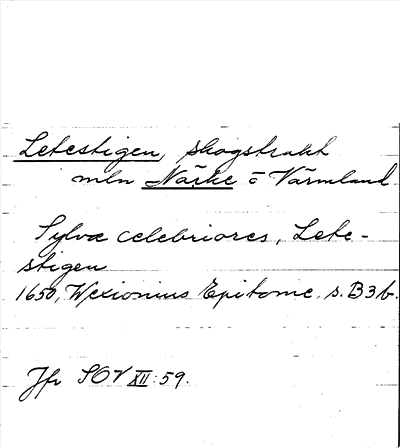 Letestigen, skogstrakt
mln Närke o Värmland
Sylvæ celebriores, Lete-
stigen
1650, Wexionius Epitome, s. B3b.
Jfr SOV XII:59.